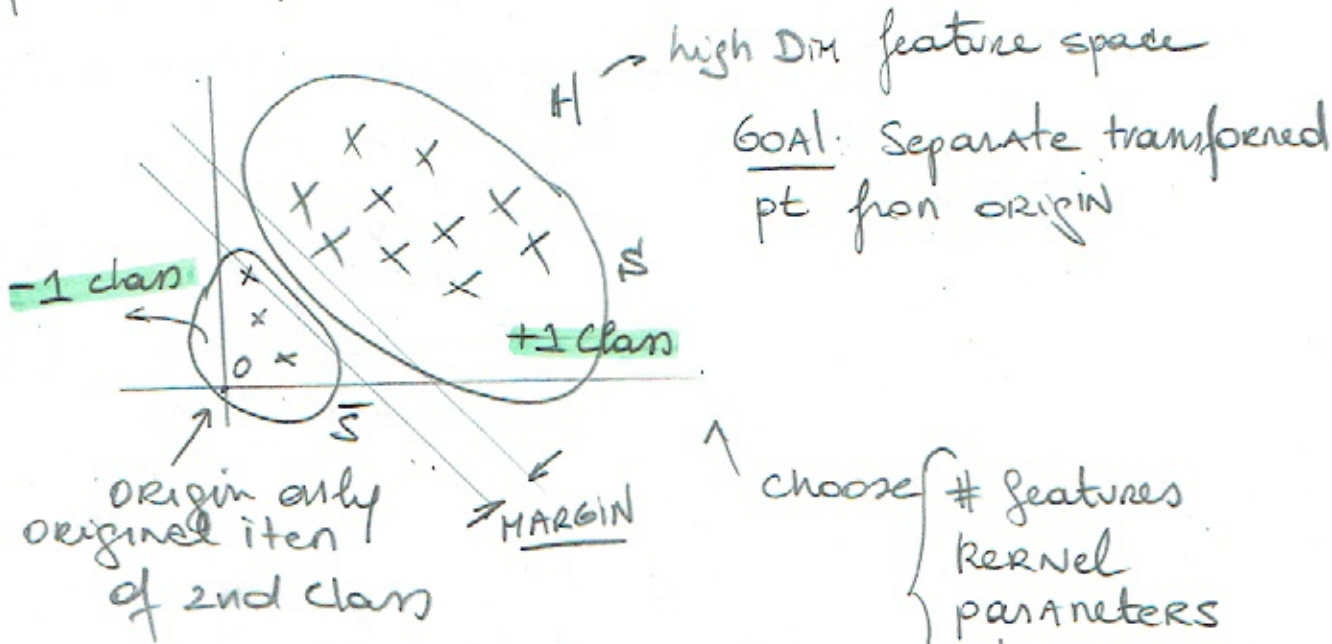 H → high DIM feature space
GOAL: Separate transformed
pt from ORIGIN
-1 class
+1 class
S
O
S̅
ORIGIN only
original item
of 2nd class
MARGIN
choose { # features
KERNEL
PARAMETERS